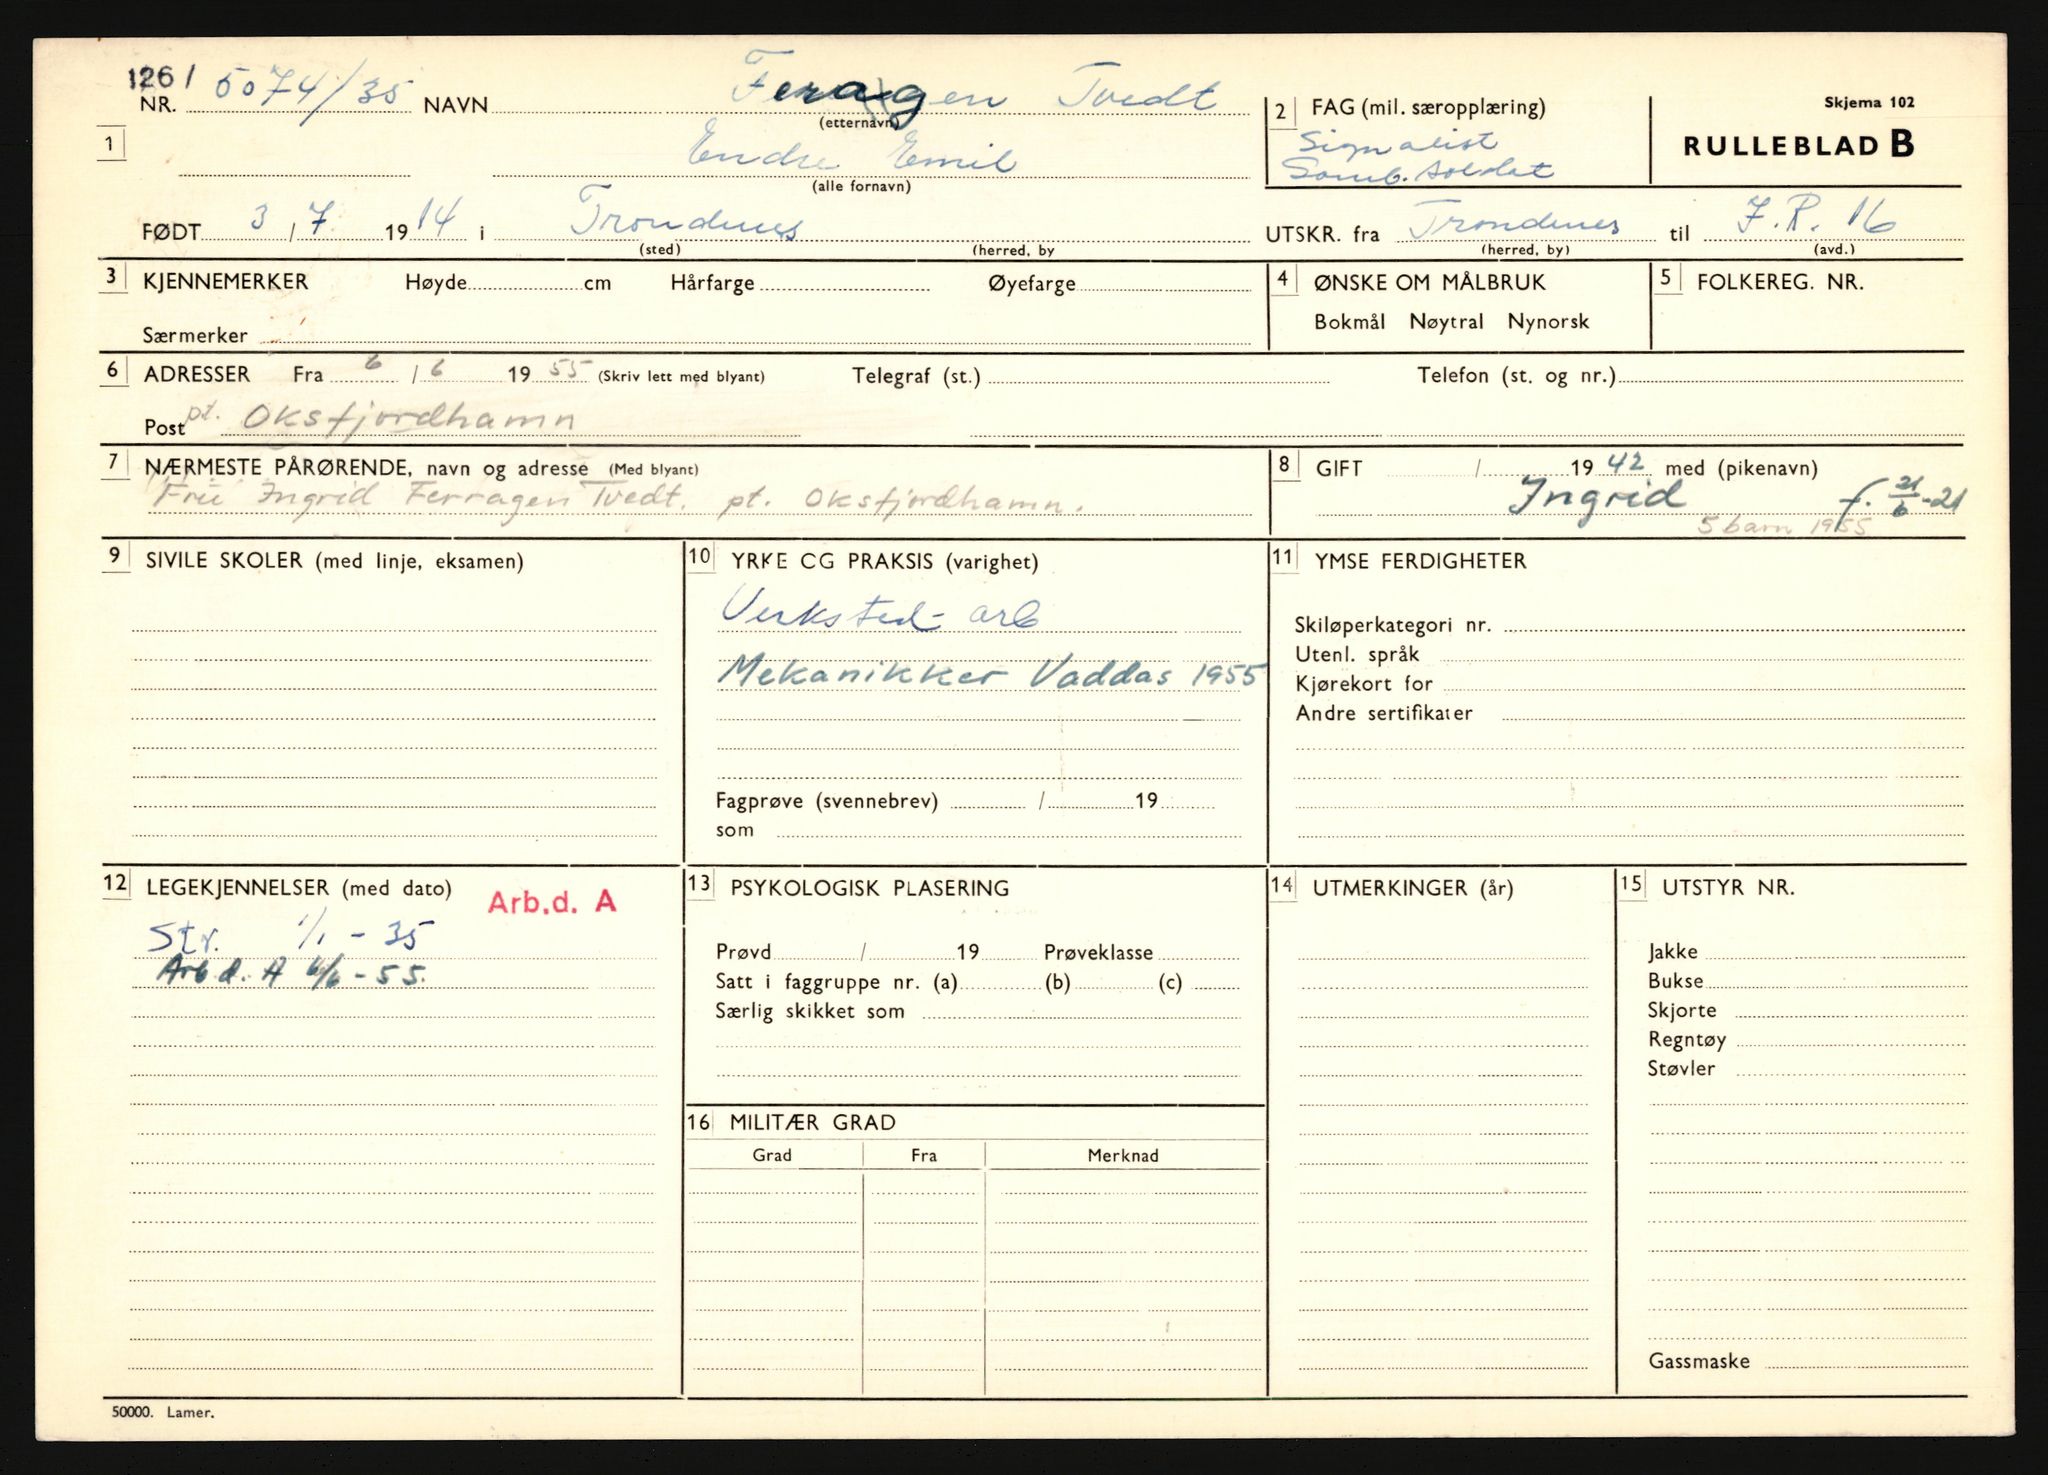 126 / 5074/35 NAVN Feragen Tvedt
NR. (etternavn)
1 Endre Emil
(alle fornavn)
2 FAG (mil. særopplæring)
Signalist
Samb. soldat
Skjema 102
RULLEBLAD B
FØDT 3 / 7 1914 i Trondenes
(sted) (herred, by
UTSKR. fra Trondenes til I.R. 16
(herred, by) (avd.)
3 KJENNEMERKER Høyde cm Hårfarge Øyefarge
Særmerker
4 ØNSKE OM MÅLBRUK
Bokmål Nøytral Nynorsk
5 FOLKEREG. NR.
6 ADRESSER Fra 6 / 6 1955 (Skriv lett med blyant) Telegraf (st.) Telefon (st. og nr.)
Post pt. Oksfjordhamn
7 NÆRMESTE PÅRØRENDE, navn og adresse (Med blyant)
Fru Ingrid Ferragen Tvedt. pt. Oksfjordhamn.
8 GIFT / 1942 med (pikenavn)
Ingrid f. 21/6-21
5 barn 1955
9 SIVILE SKOLER (med linje, eksamen)
10 YRKE CG PRAKSIS (varighet)
Verksted- arb
Mekanikker Vaddas 1955
Fagprøve (svennebrev) / 19
som
11 YMSE FERDIGHETER
Skiløperkategori nr.
Utenl. språk
Kjørekort for
Andre sertifikater
12 LEGEKJENNELSER (med dato) Arb.d. A
Str. 1/1 - 35
Arb.d. A 6/6 - 55.
13 PSYKOLOGISK PLASERING
Prøvd / 19 Prøveklasse
Satt i faggruppe nr. (a) (b) (c)
Særlig skikket som
14 UTMERKINGER (år)
15 UTSTYR NR.
Jakke
Bukse
Skjorte
Regntøy
Støvler
Gassmaske
16 MILITÆR GRAD
Grad Fra Merknad
50000. Lamer.